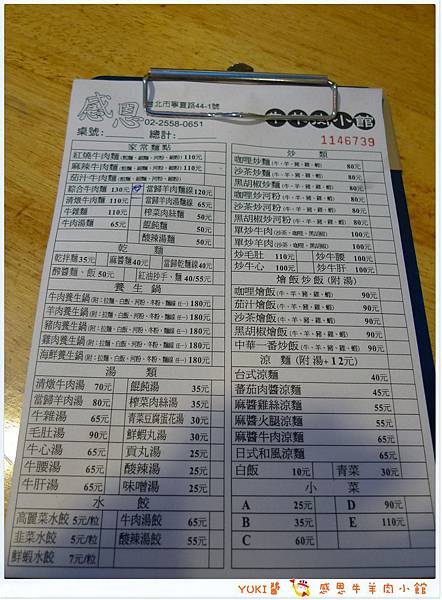 感恩
台北市寧夏路44-1號
02-2558-0651
牛羊肉小館
桌號: 總計:
1146739
家常麵點
紅燒牛肉麵(粗麵、細麵、河粉、冬粉、細粉) 110元
麻辣牛肉麵(粗麵、細麵、河粉、冬粉、細粉) 110元
茄汁牛肉麵(粗麵、細麵、河粉、冬粉、細粉) 110元
綜合牛肉麵 130元 當歸羊肉麵線 120元
清燉牛肉麵 110元 當歸羊肉湯麵線 65元
牛雜麵 110元 榨菜肉絲麵 50元
牛肉湯麵 65元 餛飩麵 50元
酸辣湯麵 50元
乾麵
乾拌麵35元 麻醬麵40元 當歸乾麵線40元
醡醬麵、飯50元 紅油抄手、麵 40/55元
養生鍋
牛肉養生鍋(附:拉麵、白飯、河粉、冬粉、麵線 任一) 180元
羊肉養生鍋(附:拉麵、白飯、河粉、冬粉、麵線 任一) 180元
豬肉養生鍋(附:拉麵、白飯、河粉、冬粉、麵線 任一) 180元
雞肉養生鍋(附:拉麵、白飯、河粉、冬粉、麵線 任一) 180元
海鮮養生鍋(附:拉麵、白飯、河粉、冬粉、麵線 任一) 180元
湯類
清燉牛肉湯 70元 餛飩湯 35元
當歸羊肉湯 80元 榨菜肉絲湯 35元
牛雜湯 65元 青菜豆腐蛋花湯 30元
毛肚湯 90元 鮮蝦丸湯 30元
牛心湯 65元 貢丸湯 25元
牛腰湯 65元 酸辣湯 25元
牛肝湯 65元 味噌湯 25元
水餃
高麗菜水餃 5元/粒 牛肉湯餃 65元
韭菜水餃 5元/粒 酸辣湯餃 55元
鮮蝦水餃 7元/粒
炒類
咖哩炒麵(牛、羊、豬、雞、蝦) 80元
沙茶炒麵(牛、羊、豬、雞、蝦) 80元
黑胡椒炒麵(牛、羊、豬、雞、蝦) 80元
咖哩炒河粉(牛、羊、豬、雞、蝦) 80元
沙茶炒河粉(牛、羊、豬、雞、蝦) 80元
黑胡椒炒河粉(牛、羊、豬、雞、蝦) 80元
單炒牛肉(沙茶、咖哩、黑胡椒) 100元
單炒羊肉(沙茶、咖哩、黑胡椒) 100元
炒毛肚 110元 炒牛腰 100元
炒牛心 100元 炒牛肝 100元
燴飯炒飯(附湯)
咖哩燴飯(牛、羊、豬、雞、蝦) 90元
茄汁燴飯(牛、羊、豬、雞、蝦) 90元
沙茶燴飯(牛、羊、豬、雞、蝦) 90元
黑胡椒燴飯(牛、羊、豬、雞、蝦) 90元
中華一番炒飯(牛、羊、豬、雞、蝦) 90元
涼麵(附湯+12元)
台式涼麵 40元
蕃茄肉醬涼麵 45元
麻醬雞絲涼麵 55元
麻醬火腿涼麵 55元
麻醬牛肉涼麵 65元
日式和風涼麵 65元
白飯 10元 青菜 30元
小菜
A 25元 D 90元
B 35元 E 110元
C 60元
YUKI醬 感恩牛羊肉小館